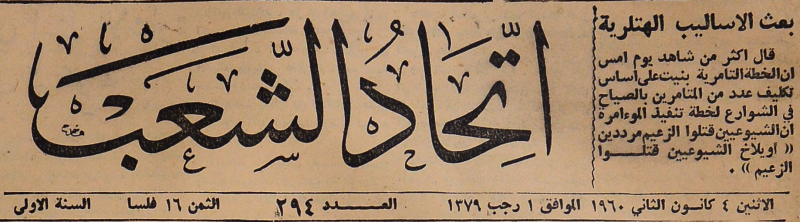 بعث الاساليب الهتلرية
قال اكثر من شاهد يوم امس
ان الخطة التامرية بنيت على أساس
تكليف عدد من المتامرين بالصياح
في الشوارع لخطة تنفيذ المؤامرة
ان الشيوعيين قتلوا الزعيم مرددين
(( اويلاخ الشيوعيين قتلـــوا
الزعيم )) .
اتّحادُ الشَّعب
الاثنين ٤ كانون الثاني ١٩٦٠ الموافق ١ رجب ١٣٧٩ العـــدد ٢٩٤ الثمن ١٦ فلسا السنة الاولى